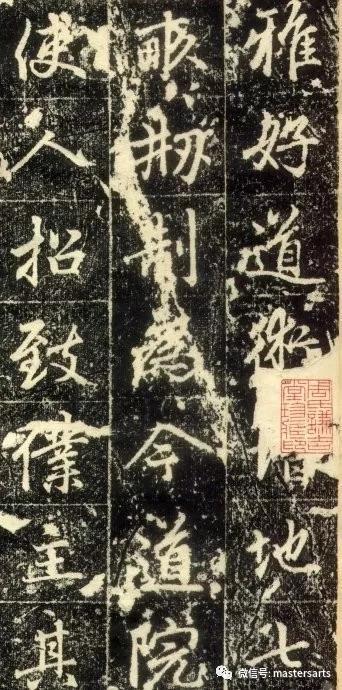 雅好道術地七
畝剏制為今道院
使人招致僕主其
微信号: mastersarts